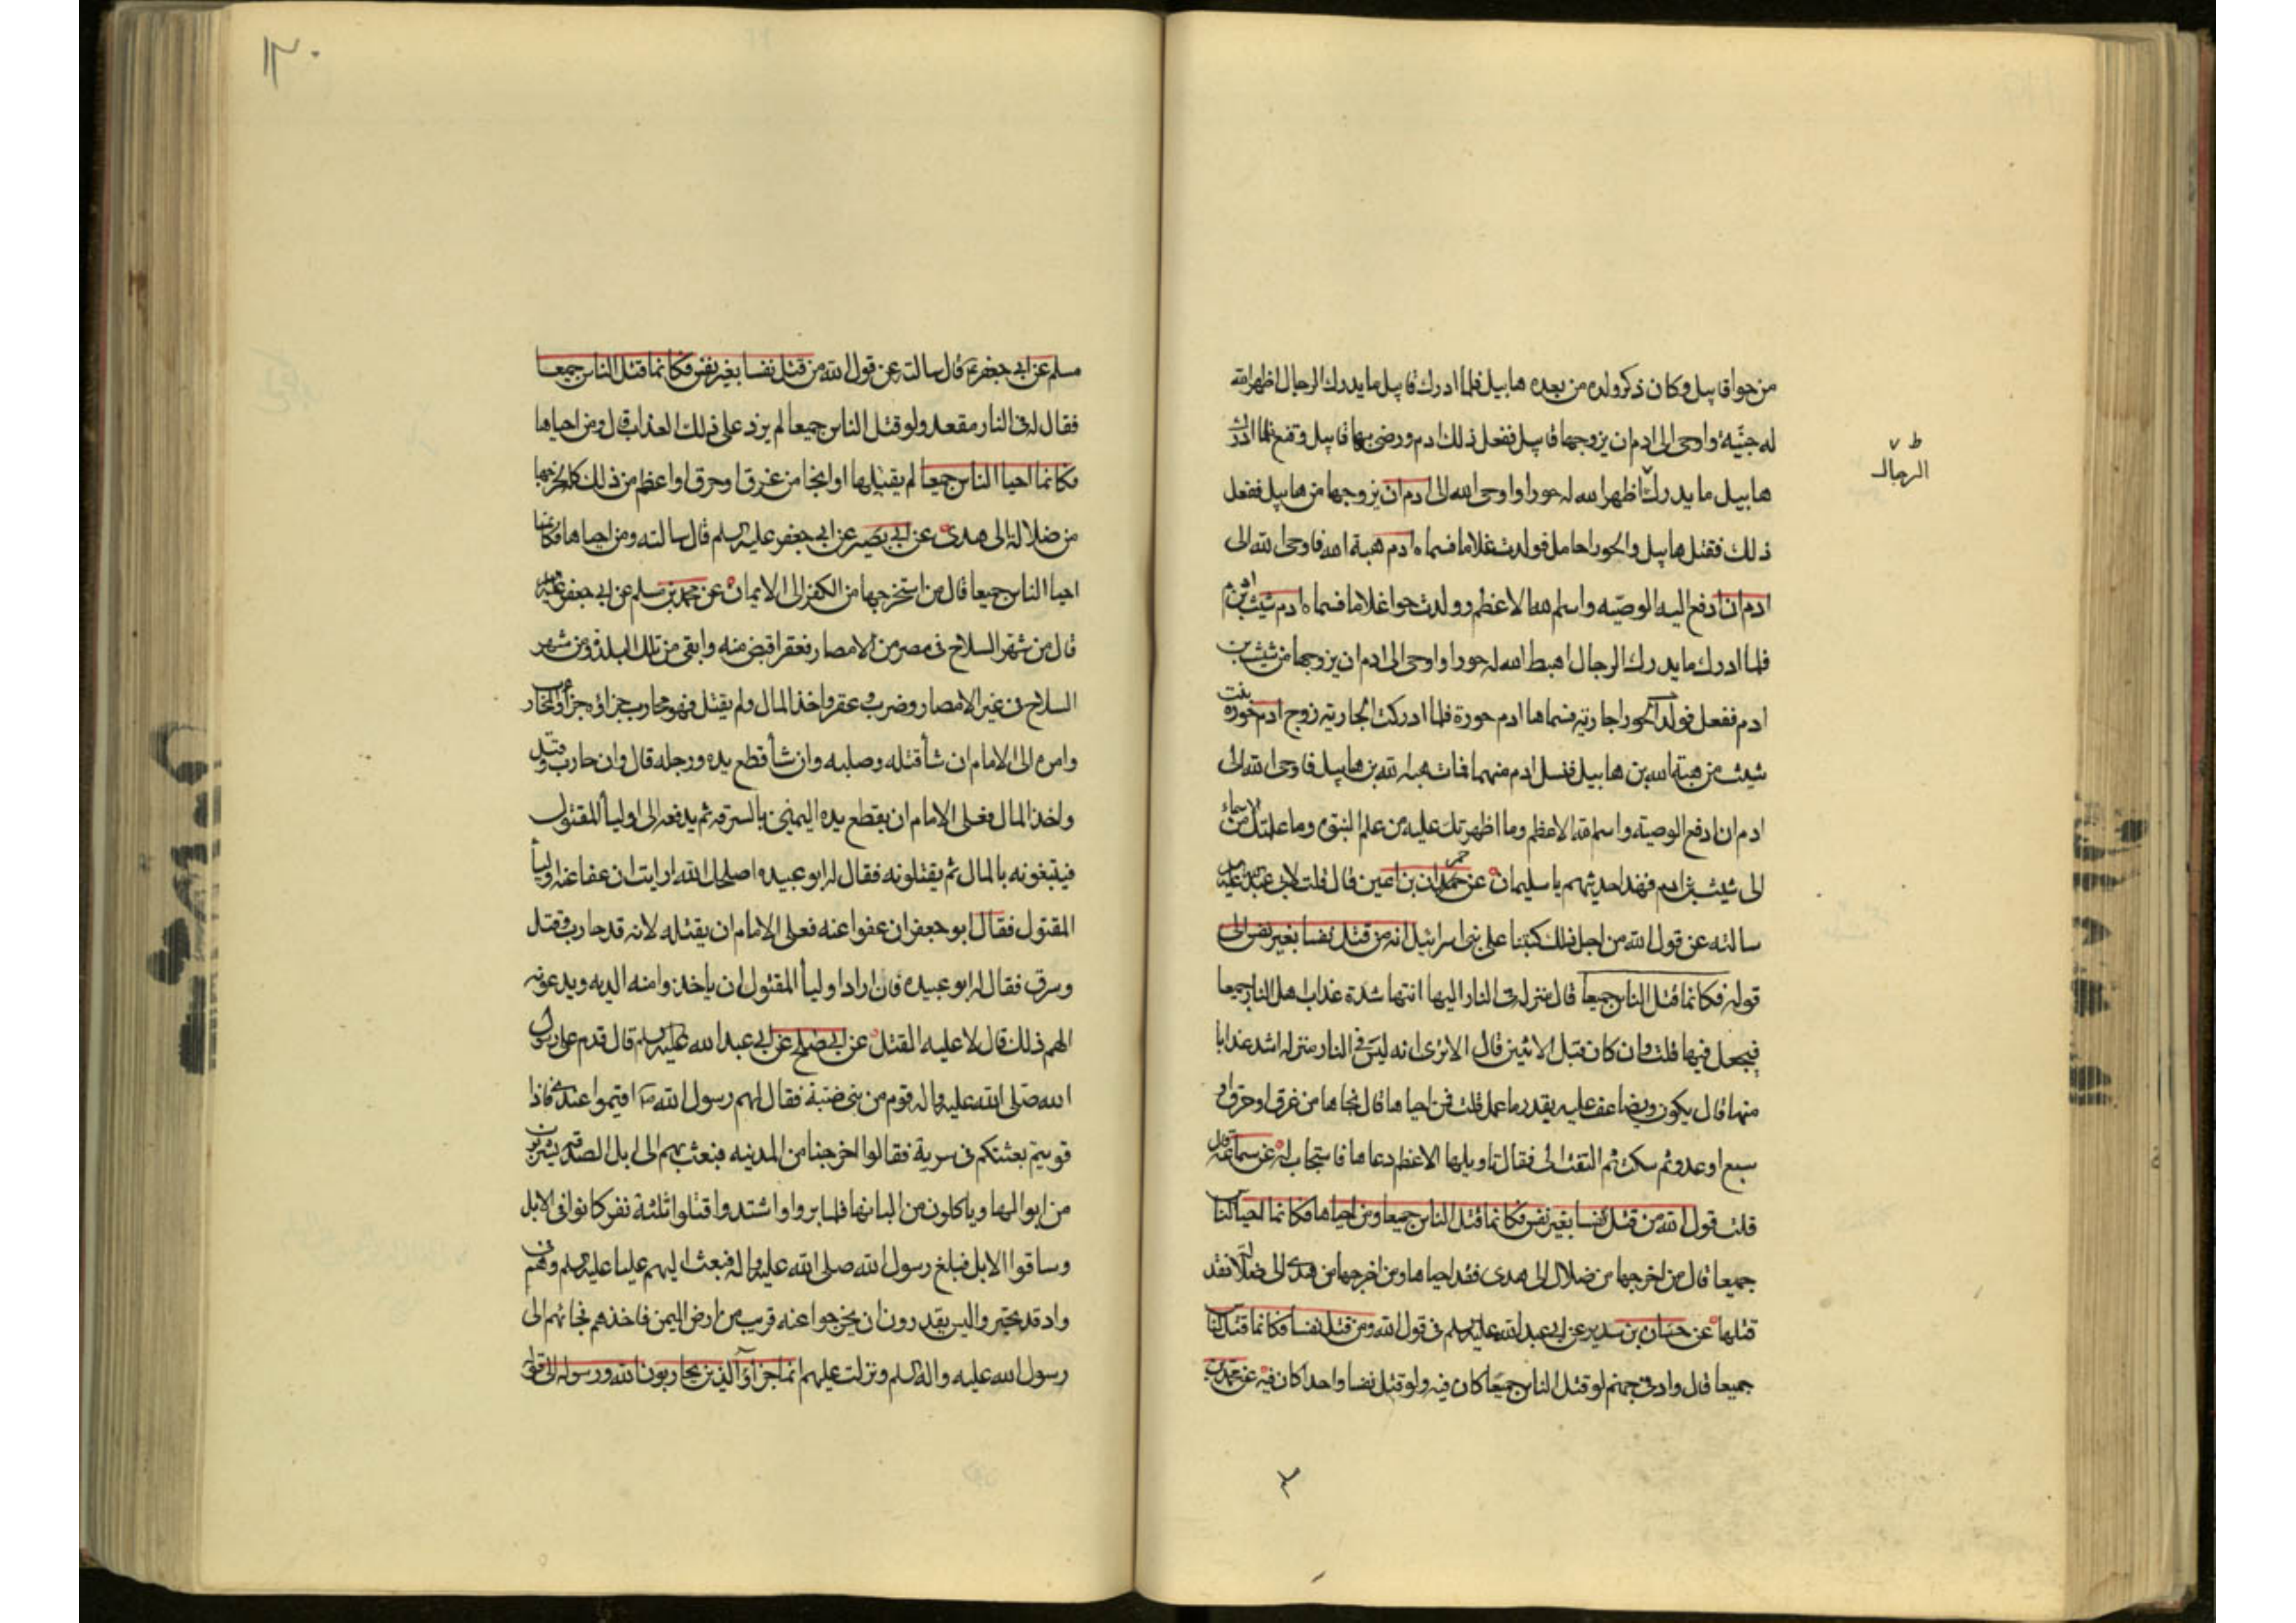 من حوا قابيل وكان ذكر ولده من بعده هابيل فلما ادرك قابيل ما يدرك الرجال اظهر الله
له جنيّة واوحى الى ادم ان يزوجها قابيل ففعل ذلك ادم ورضى بها قابيل وقنع فلما ادرك
هابيل ما يدرك اظهر الله له حورا واوحى الله الى ادم ان يزوجها من هابيل ففعل
الرجال
ذلك فقتل هابيل والحورا حامل فولدت غلاما فسماه ادم هبة الله فاوحى الله الى
ادم ان ادفع اليه الوصيّه واسم الله الاعظم وولدت حوا غلاما فسماه ادم شيث بن ادم
فلما ادرك ما يدرك الرجال اهبط الله له حورا واوحى الى ادم ان يزوجها من شيث بن
ادم ففعل فولدت الحورا جارية فسماها ادم حورة فلما ادركت الجارية زوج ادم حورة بنت
شيث من هبة الله بن هابيل فنسل ادم منهما فمات هبة الله بن هابيل فاوحى الله الى
ادم ان ادفع الوصية واسم الله الاعظم وما اظهرتك عليه من علم النبوة وما علمتك من الاسماء
الى شيث بن ادم فهذا حديثهم يا سليمان عن حمران بن اعين قال قلت لابي عبد الله عليه السلم
سالته عن قول الله من اجل ذلك كتبنا على بنى اسرائيل انه من قتل نفسا بغير نفس الى
قوله فكانما قتل الناس جميعا قال منزلة فى النار اليها انتها شدة عذاب اهل النار جميعا
فيجعل فيها قلت وان كان قتل الاثنين قال الا ترى انه ليس فى النار منزلة اشد عذابا
منها قال يكون ويضاعف عليه بقدر ما عمل قلت فمن احياها قال نجاها من غرق او حرق او
سبع او عدو ثم سكت ثم التفت الى فقال تاويلها الاعظم دعاها فاستجاب له عن سماعة قال
قلت قول الله من قتل نفسا بغير نفس فكانما قتل الناس جميعا ومن احياها فكانما احيا الناس
جميعا قال من اخرجها من ضلال الى هدى فقد احياها ومن اخرجها من هدى الى ضلالة فقد
قتلها عن حنان بن سدير عن ابى عبد الله عليه السلم فى قول الله ومن قتل نفسا فكانما قتل الناس
جميعا قال واد فى جهنم لو قتل الناس جميعا كان فيه ولو قتل نفسا واحدا كان فيه عن محمد بن
١٣٠
مسلم عن ابى جعفر ع قال سالته عن قول الله من قتل نفسا بغير نفس فكانما قتل الناس جميعا
فقال له فى النار مقعد ولو قتل الناس جميعا لم يزد على ذلك العذاب قال ومن احياها
فكانما احيا الناس جميعا لم يقتلها او انجا من غرق او حرق او اعظم من ذلك كله يخرجها
من ضلالة الى هدى عن ابى بصير عن ابى جعفر عليه السلم قال سالته ومن احياها فكانما
احيا الناس جميعا قال من استخرجها من الكفر الى الايمان عن محمد بن مسلم عن ابى جعفر عليه السلم
قال من شهر السلاح فى مصر من الامصار فعقر اقتص منه ونفى من تلك البلد ومن شهر
السلاح فى غير الامصار وضرب وعقر واخذ المال ولم يقتل فهو محارب جزاؤه جزاء المحارب
وامره الى الامام ان شأ قتله وصلبه وان شأ قطع يده ورجله قال وان حارب وقتل
واخذ المال فعلى الامام ان يقطع يده اليمنى بالسرقه ثم يدفعه الى اوليأ المقتول
فيتبعونه بالمال ثم يقتلونه فقال له ابو عبيده اصلحك الله ارايت ان عفا عنه اوليأ
المقتول فقال ابو جعفر ان عفوا عنه فعلى الامام ان يقتله لانه قد حارب وقتل
وسرق فقال له ابو عبيده فان اراد اوليأ المقتول ان ياخذوا منه الديه ويدعونه
الهم ذلك قال لا عليه القتل عن ابى صلح عن ابى عبد الله عليه السلم قال قدم على رسول
الله صلى الله عليه واله قوم من بنى ضبة فقال لهم رسول الله ص اقيموا عندى فاذا
قويتم بعثتكم فى سرية فقالوا اخرجنا من المدينه فبعث بهم الى ابل الصدقه يشربون
من ابوالها وياكلون من البانها فلما بروا واشتدوا قتلوا ثلثة نفر كانوا فى الابل
وساقوا الابل فبلغ رسول الله صلى الله عليه واله فبعث اليهم عليا عليه السلم وهم فى
واد قد تحيروا ليس يقدرون ان يخرجوا عنه قريب من ارض اليمن فاخذهم فجا بهم الى
رسول الله عليه واله السلم ونزلت عليهم انما جزاؤا الذين يحاربون الله ورسوله الى قوله